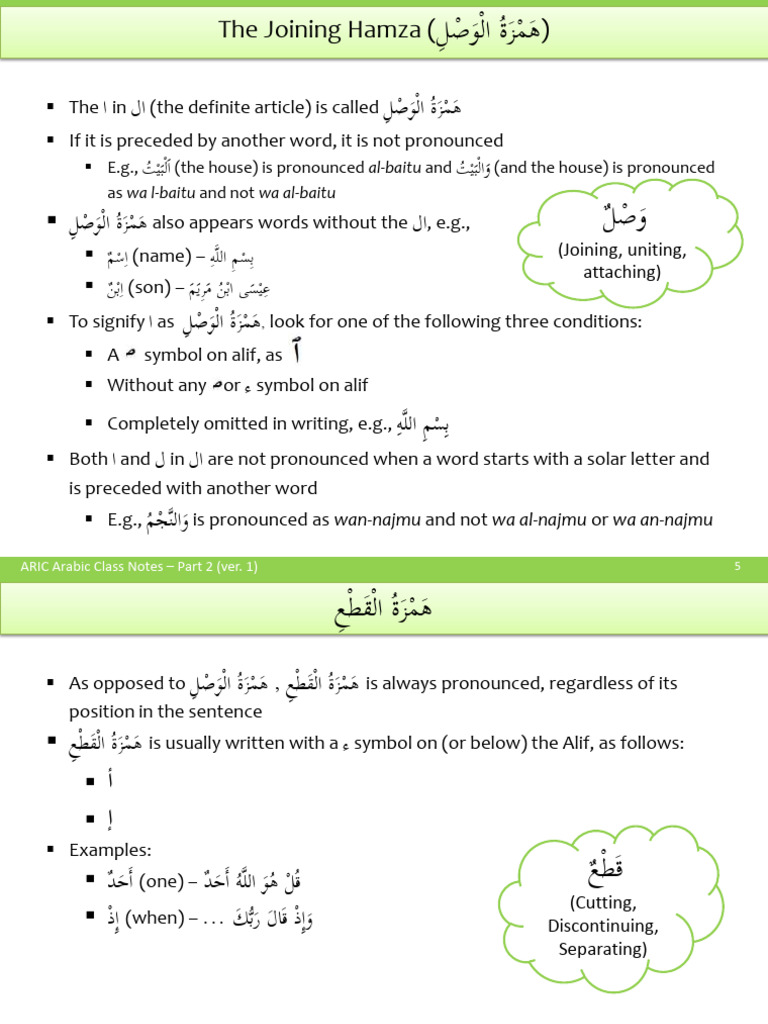 The Joining Hamza (هَمْزَةُ الْوَصْلِ)
▪ The ا in ال (the definite article) is called هَمْزَةُ الْوَصْلِ
▪ If it is preceded by another word, it is not pronounced
▪ E.g., اَلْبَيْتُ (the house) is pronounced al-baitu and وَالْبَيْتُ (and the house) is pronounced
as wa l-baitu and not wa al-baitu
▪ هَمْزَةُ الْوَصْلِ also appears words without the ال, e.g.,
▪ اِسْمٌ (name) – بِسْمِ اللَّهِ
▪ اِبْنٌ (son) – عِيْسَى ابْنُ مَرِيَمَ
وَصْلٌ
(Joining, uniting,
attaching)
▪ To signify ا as هَمْزَةُ الْوَصْلِ, look for one of the following three conditions:
▪ A ص symbol on alif, as ٱ
▪ Without any ص or ء symbol on alif
▪ Completely omitted in writing, e.g., بِسْمِ اللَّهِ
▪ Both ا and ل in ال are not pronounced when a word starts with a solar letter and
is preceded with another word
▪ E.g., وَالنَّجْمُ is pronounced as wan-najmu and not wa al-najmu or wa an-najmu
ARIC Arabic Class Notes – Part 2 (ver. 1) 5
هَمْزَةُ الْقَطْعِ
▪ As opposed to هَمْزَةُ الْوَصْلِ , هَمْزَةُ الْقَطْعِ is always pronounced, regardless of its
position in the sentence
▪ هَمْزَةُ الْقَطْعِ is usually written with a ء symbol on (or below) the Alif, as follows:
▪ أ
▪ إ
▪ Examples:
▪ أَحَدٌ (one) – قُلْ هُوَ اللَّهُ أَحَدٌ
▪ إِذْ (when) – وَإِذْ قَالَ رَبُّكَ …
قَطْعٌ
(Cutting,
Discontinuing,
Separating)